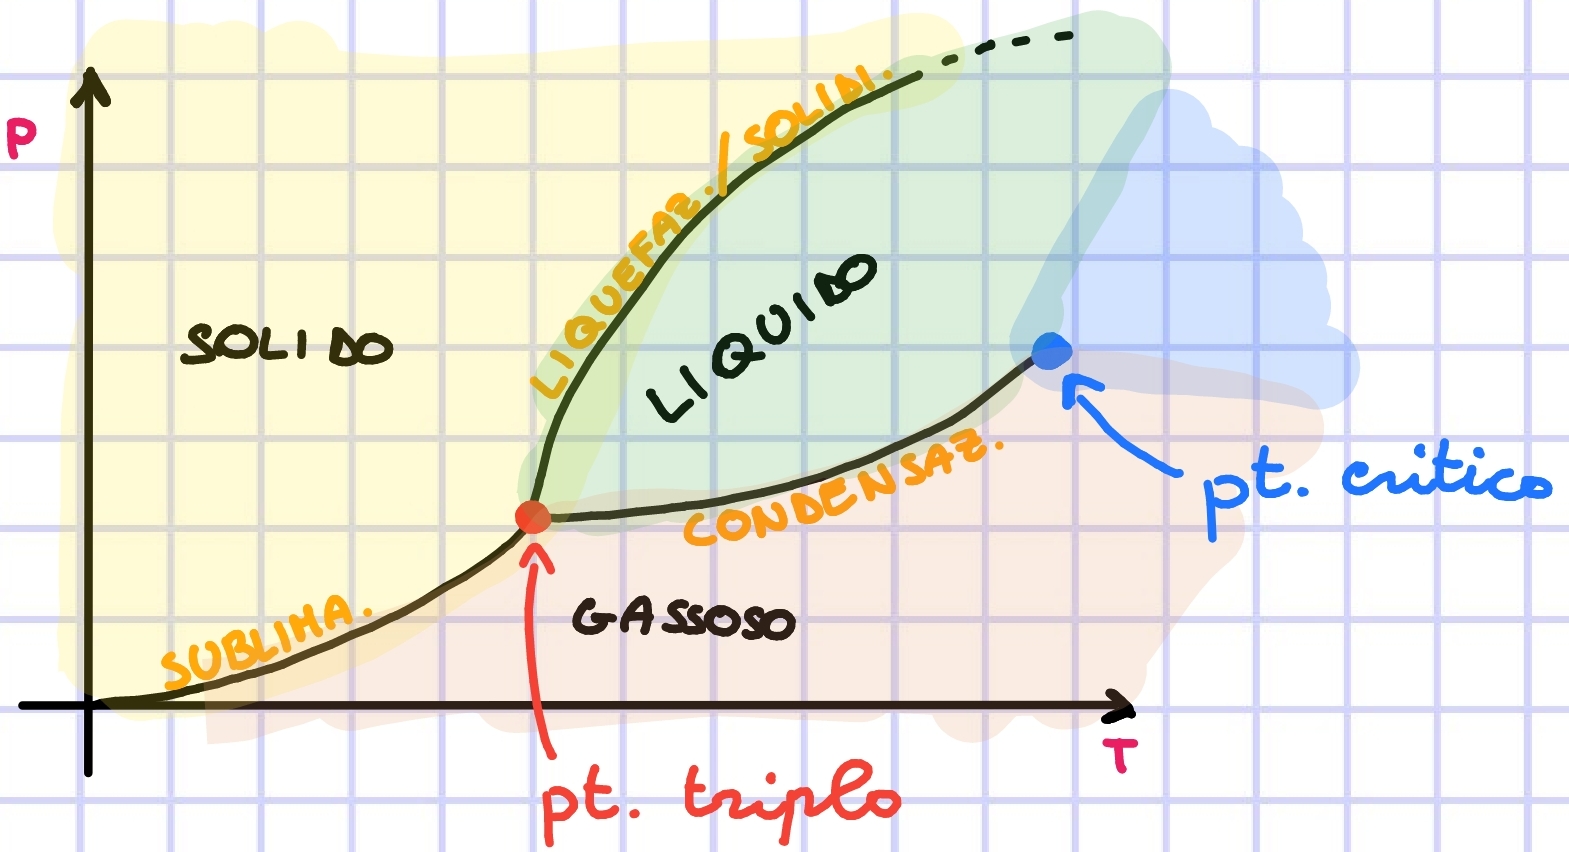 P
LIQUEFAZ./SOLIDI.
SOLIDO
LIQUIDO
pt. critico
CONDENSAZ.
SUBLIMA.
GASSOSO
T
pt. triplo